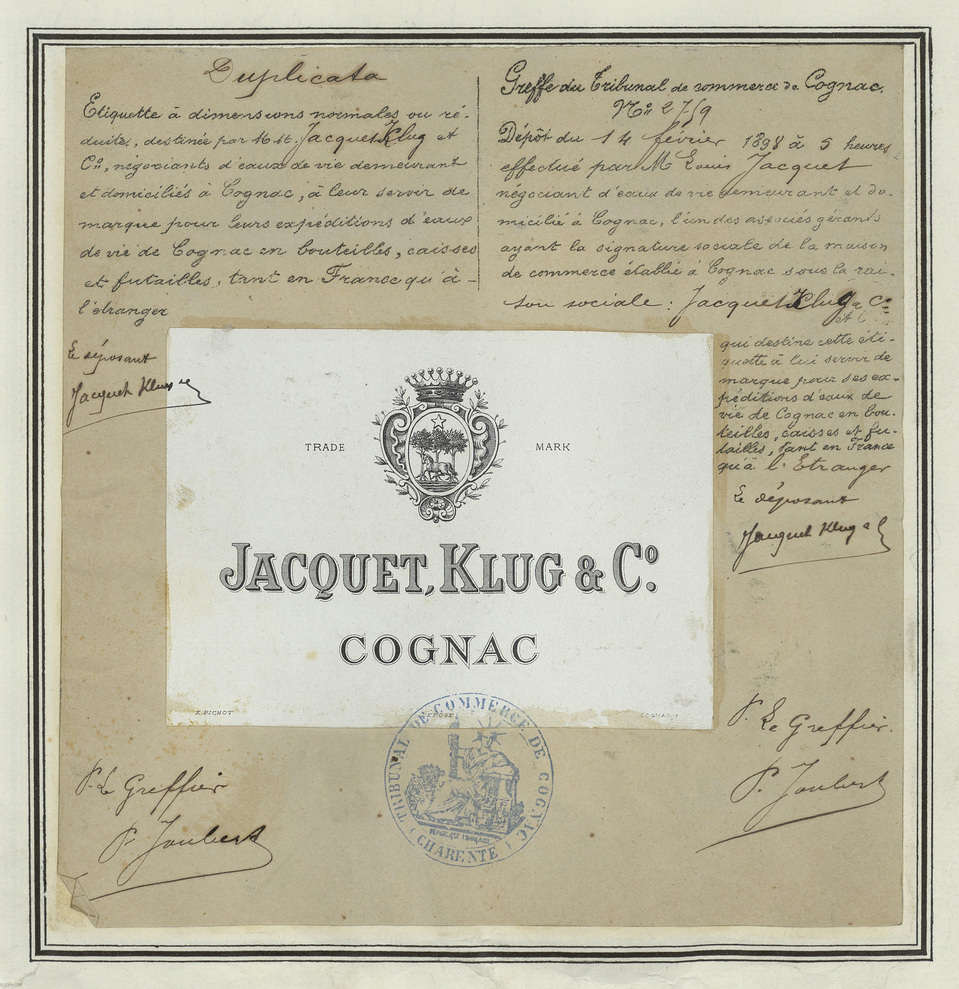 Duplicata
Etiquette à dimensions normales ou ré-
duites, destinée par M.M. Jacquet Klug et
Cie, négociants d'eaux de vie demeurant
et domiciliés à Cognac, à leur servir de
marque pour leurs expéditions d'eaux
de vie de Cognac en bouteilles, caisses
et futailles, tant en France qu'à-
l'étranger
Le déposant
Jacquet Klug
Greffe du Tribunal de commerce de Cognac.
No 2759
Dépôt du 14 février 1898 à 5 heures
effectué par M Louis Jacquet
négociant d'eaux de vie demeurant et do-
micilié à Cognac, l'un des associés gérants
ayant la signature sociale de la maison
de commerce établie à Cognac sous la rai-
son sociale : Jacquet Klug & Co
qui destine cette éti-
quette à lui servir de
marque pour ses ex-
péditions d'eaux de
vie de Cognac en bou-
teilles, caisses et fu-
tailles, tant en France
qu'à l'Etranger
Le déposant
Jacquet Klug
TRADE MARK
JACQUET, KLUG & Co.
COGNAC
E. PICHOT DÉPOSÉ COGNAC
TRIBUNAL DE COMMERCE DE COGNAC
CHARENTE
P. Le Greffier
P. Joubert
P. Le Greffier.
P. Joubert